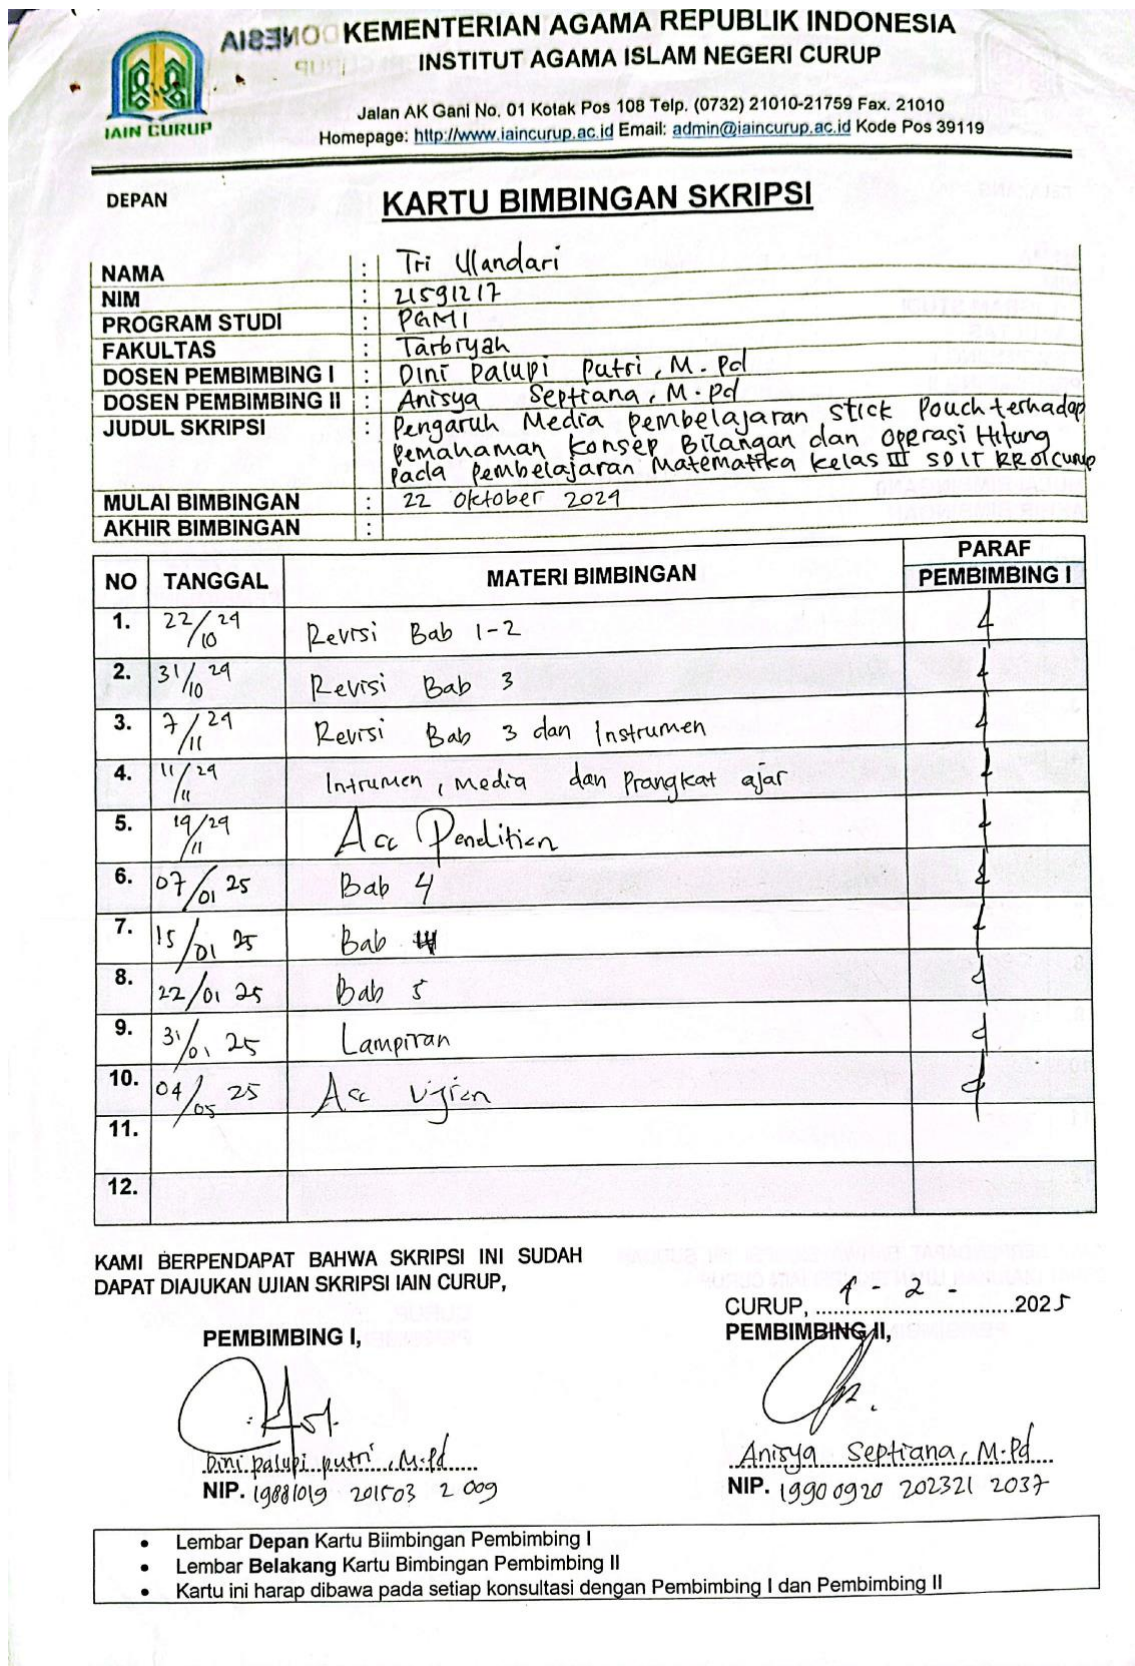 KEMENTERIAN AGAMA REPUBLIK INDONESIA
INSTITUT AGAMA ISLAM NEGERI CURUP
IAIN CURUP
Jalan AK Gani No. 01 Kotak Pos 108 Telp. (0732) 21010-21759 Fax. 21010
Homepage: http://www.iaincurup.ac.id Email: admin@iaincurup.ac.id Kode Pos 39119
DEPAN
KARTU BIMBINGAN SKRIPSI
NAMA : Tri Ulandari
NIM : 21591217
PROGRAM STUDI : PGMI
FAKULTAS : Tarbiyah
DOSEN PEMBIMBING I : Dini Palupi Putri, M.Pd
DOSEN PEMBIMBING II : Anisya Septiana, M.Pd
JUDUL SKRIPSI : Pengaruh Media Pembelajaran Stick Pouch terhadap
Pemahaman Konsep Bilangan dan Operasi Hitung
pada Pembelajaran Matematika Kelas III SDIT RR 01 Curup
MULAI BIMBINGAN : 22 Oktober 2024
AKHIR BIMBINGAN :
NO TANGGAL MATERI BIMBINGAN PARAF
PEMBIMBING I
1. 22/10 24 Revisi Bab 1-2
2. 31/10 24 Revisi Bab 3
3. 7/11 24 Revisi Bab 3 dan Instrumen
4. 11/11 24 Intrumen, media dan Prangkat ajar
5. 19/11 24 Acc Penelitian
6. 07/01 25 Bab 4
7. 15/01 25 Bab
8. 22/01 25 Bab 5
9. 31/01 25 Lampiran
10. 04/05 25 Acc Ujian
11.
12.
KAMI BERPENDAPAT BAHWA SKRIPSI INI SUDAH
DAPAT DIAJUKAN UJIAN SKRIPSI IAIN CURUP,
CURUP, 4 - 2 - 2025
PEMBIMBING I, PEMBIMBING II,
Dini palupi putri, M.Pd Anisya Septiana, M.Pd
NIP. 19881019 201503 2 009 NIP. 19900920 202321 2037
• Lembar Depan Kartu Biimbingan Pembimbing I
• Lembar Belakang Kartu Bimbingan Pembimbing II
• Kartu ini harap dibawa pada setiap konsultasi dengan Pembimbing I dan Pembimbing II